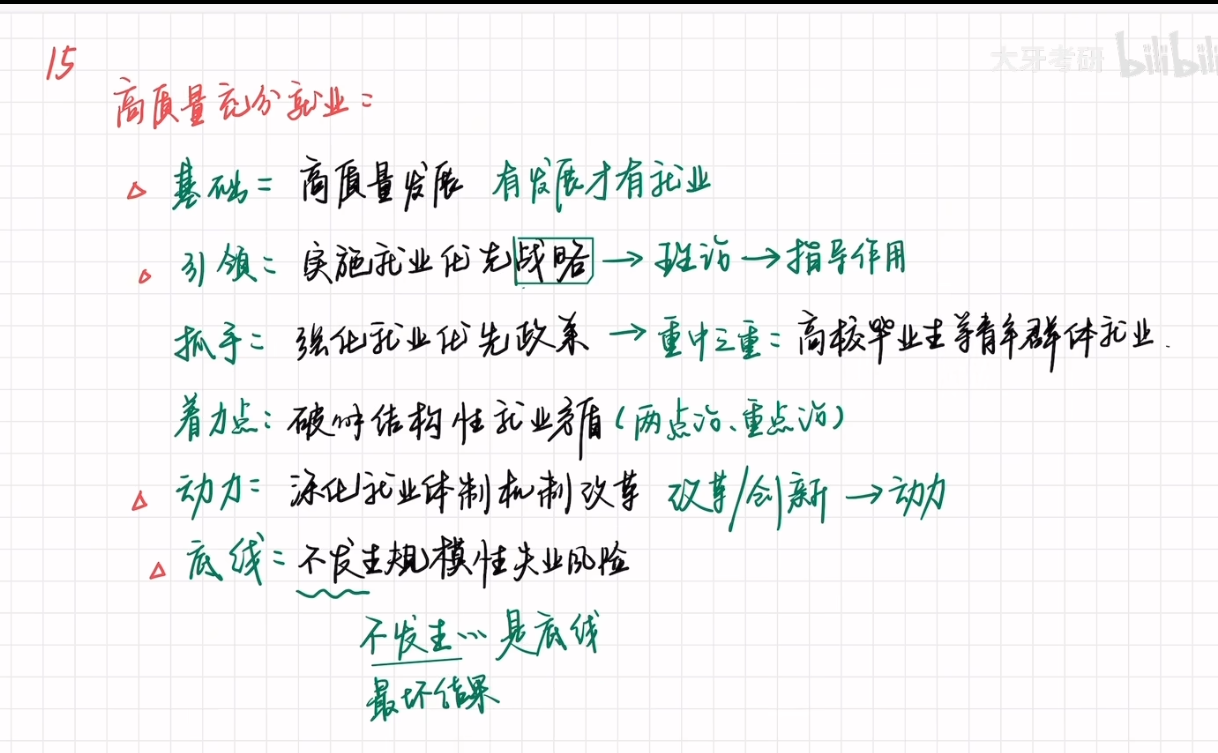 15
大牙考研 bilibili
高质量充分就业：
△ 基础：高质量发展 有发展才有就业
△ 引领：实施就业优先战略→理论→指导作用
抓手：强化就业优先政策→重中之重：高校毕业生等青年群体就业.
着力点：破解结构性就业矛盾(两点论、重点论)
△ 动力：深化就业体制机制改革 改革/创新→动力
△ 底线：不发生规模性失业风险
不发生…是底线
最坏结果